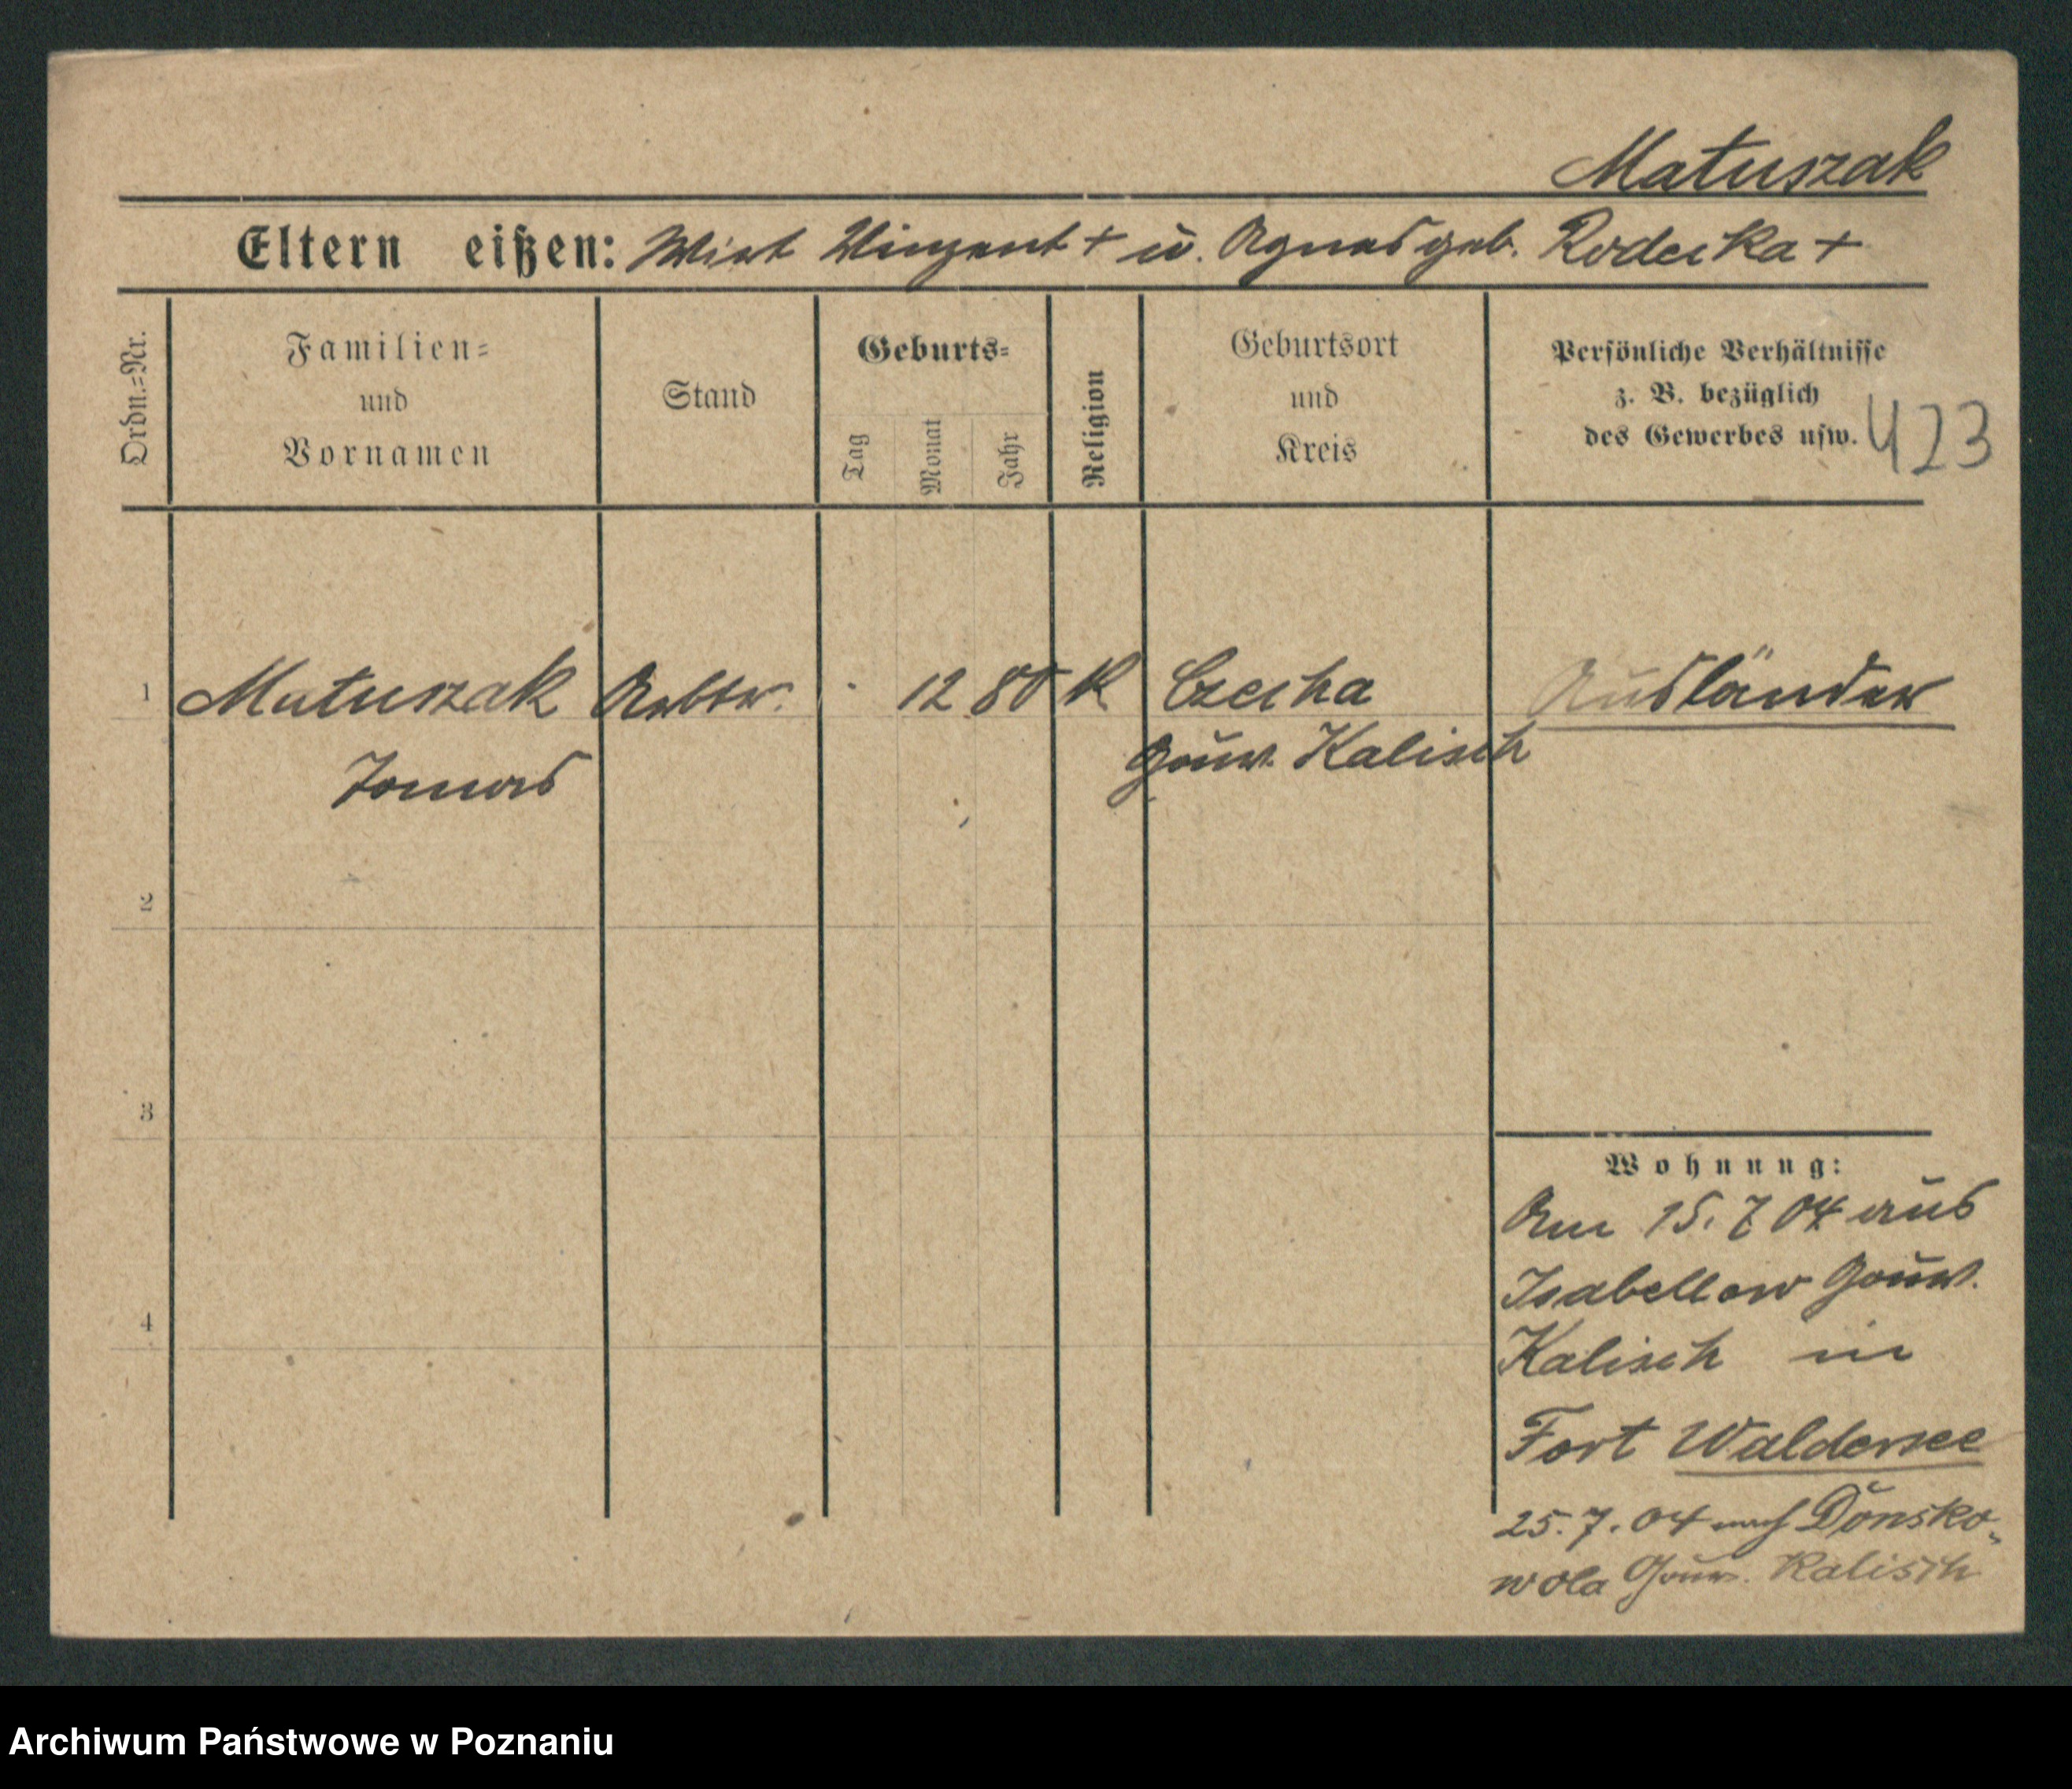 Matuszak
Eltern eißen: Wirt Vinzent + u. Agnes geb. Roderka +
Ordn.=Nr.
Familien= und Vornamen
Stand
Geburts=
Tag Monat Jahr
Religion
Geburtsort und Kreis
Persönliche Verhältnisse
z. B. bezüglich
des Gewerbes usw.
423
1 Matuszak Arbtr. 12 80 K Czecha Ausländer
Tomas Gouv. Kalisch
2
3
4
Wohnung:
Am 15.7 04 aus
Isabellow Gouv.
Kalisch in
Fort Waldersee
25.7.04 nach Donsko-
wola Gouv. Kalisch
Archiwum Państwowe w Poznaniu